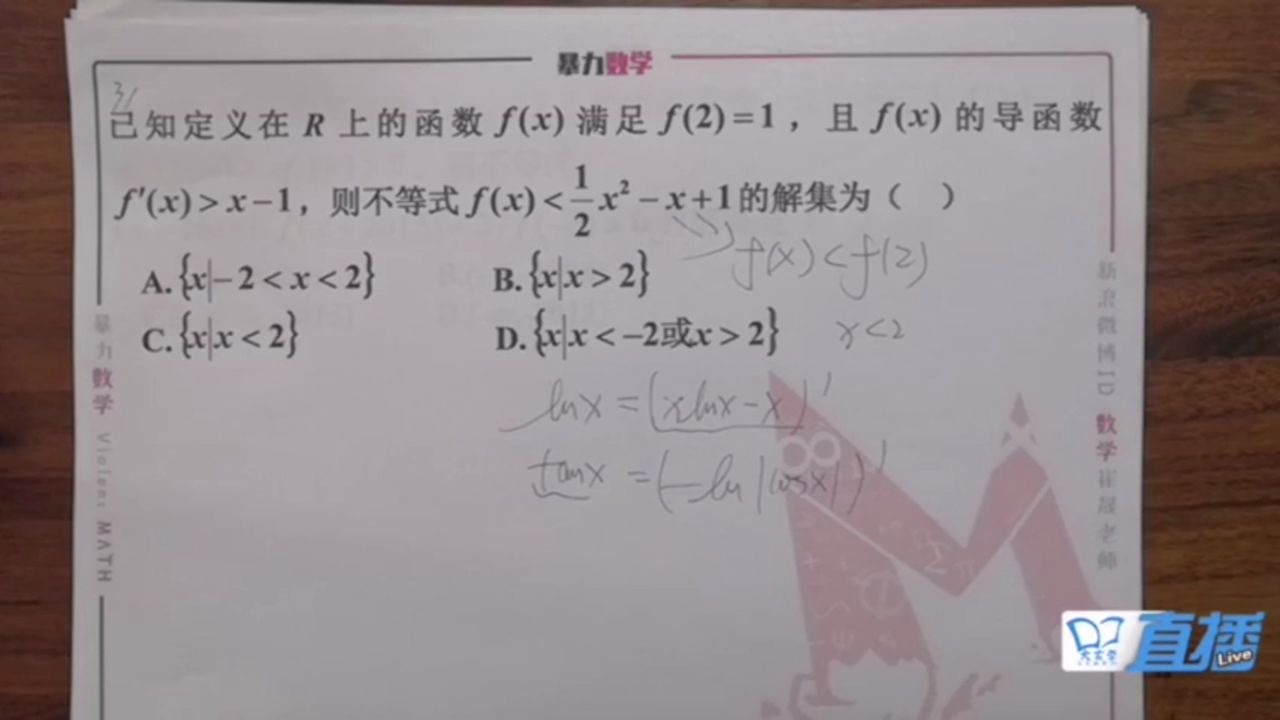 暴力数学
3/
已知定义在 R 上的函数 f(x) 满足 f(2)=1，且 f(x) 的导函数
f′(x)>x−1，则不等式 f(x)<1/2x²−x+1的解集为（ ）
f(x)<f(2)
A.{x|−2<x<2} B.{x|x>2}
C.{x|x<2} D.{x|x<−2或x>2}
x<2
lnx=(xlnx−x)′
tanx=(−ln|cosx|)′
暴力数学 Violent MATH
新浪微博ID 数学崔晟老师
直播
Live